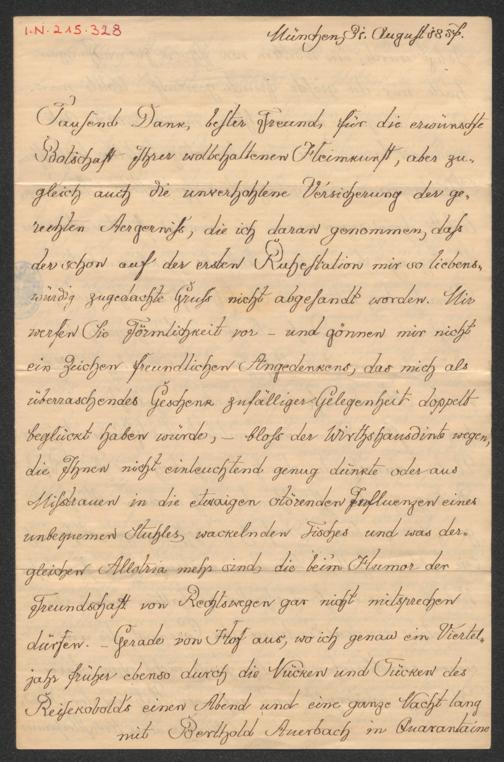 I.N. 215.328
München, 31. August 1857.
Tausend Dank, bester Freund, für die erwünschte
Botschaft Ihrer wolbehaltenen Heimkunft, aber zu-
gleich auch die unverhohlene Versicherung der ge-
rechten Aergerniß, die ich daran genommen, daß
der schon auf der ersten Ruhestation mir so liebens-
würdig zugedachte Gruß nicht abgesandt worden. Mir
werfen Sie Förmlichkeit vor – und gönnen mir nicht
ein Zeichen freundlichen Angedenkens, das mich als
überraschendes Geschenk zufälliger Gelegenheit doppelt
beglückt haben würde, – bloß der Wirthshausdinte wegen,
die Ihnen nicht einleuchtend genug dünkte oder aus
Mißtrauen in die etwaigen störenden Influenzen eines
unbequemen Stuhles, wackelnden Tisches und was der-
gleichen Allotria mehr sind, die beim Humor der
Freundschaft von Rechtswegen gar nicht mitsprechen
dürfen. – Gerade von Hof aus, wo ich genau ein Viertel-
jahr früher ebenso durch die Nücken und Tücken des
Reisekobolds einen Abend und eine ganze Nacht lang
mit Berthold Auerbach in Quarantaine